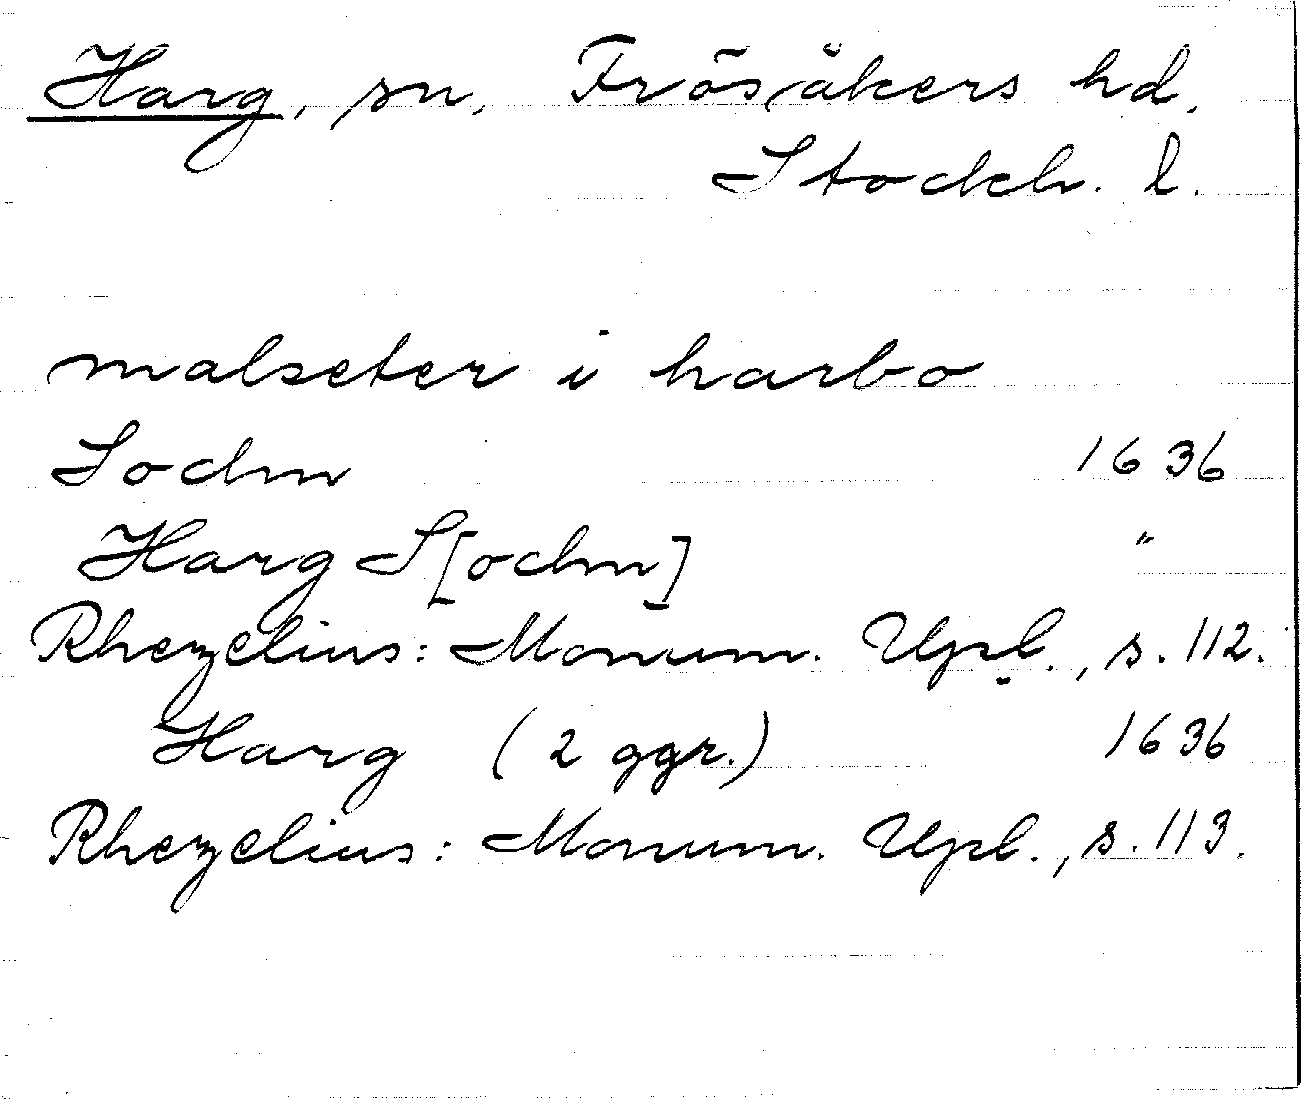 Harg, sn, Frösåkers hd.
Stockh. l.
malseter i harbo
Sochn 1636
Harg S[ochn] "
Rhezelius: Monum. Upl., s. 112.
Harg (2 ggr.) 1636
Rhezelius: Monum. Upl., s. 113.